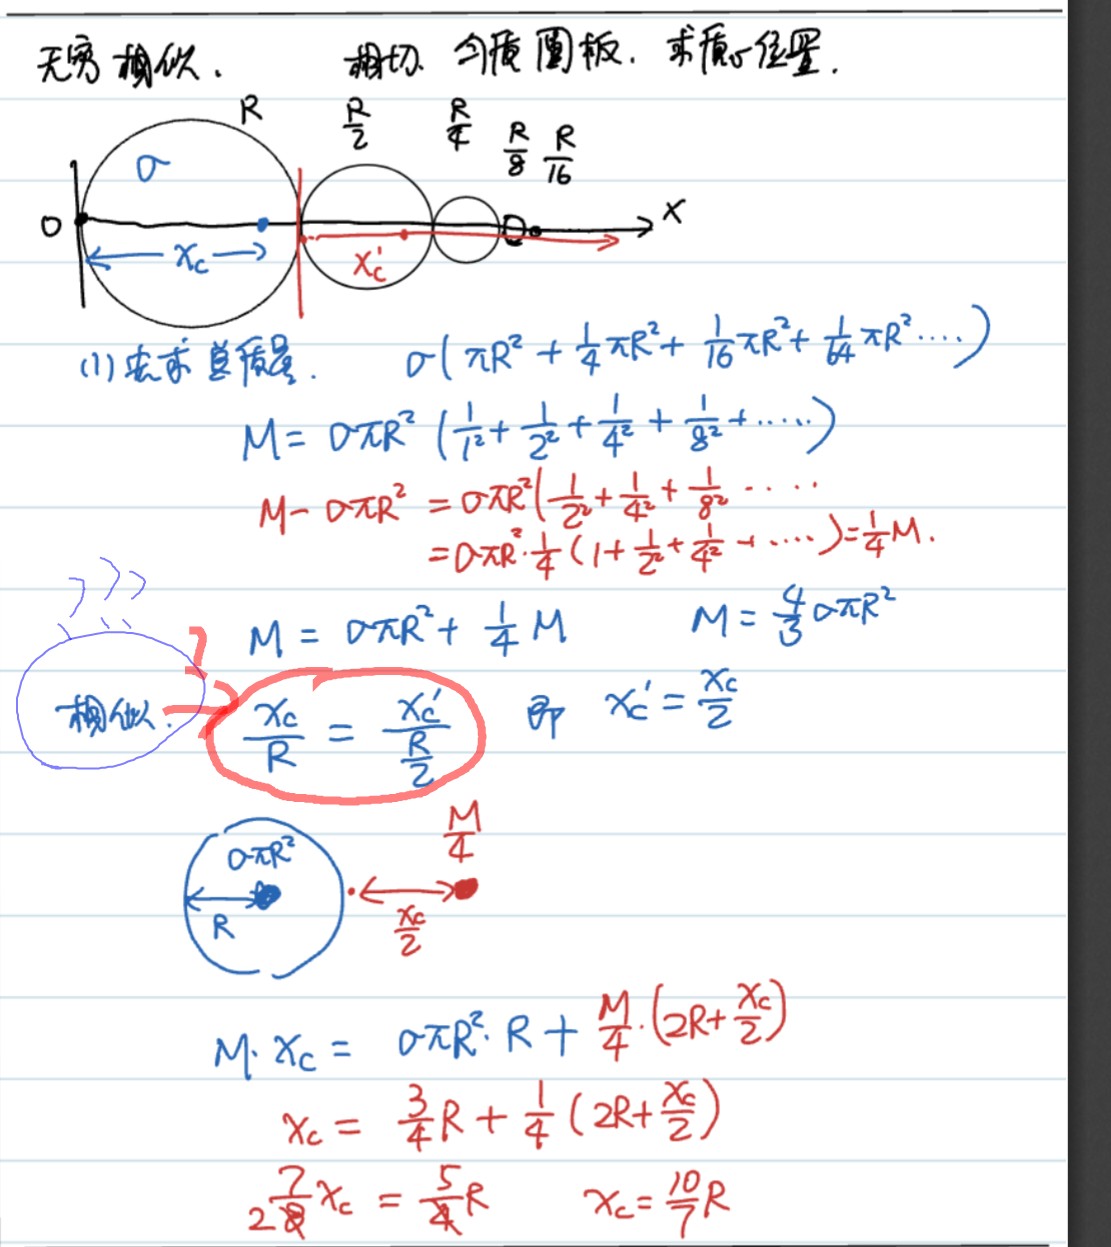 无穷相似. 相切 匀质圆板. 求质心位置.
R R/2 R/4 R/8 R/16
σ
O x
x_c x_c'
(1) 先求总质量. σ(πR² + 1/4 πR² + 1/16 πR² + 1/64 πR² ....)
M = σπR² (1/1² + 1/2² + 1/4² + 1/8² + .....)
M - σπR² = σπR² (1/2² + 1/4² + 1/8² .....
= σπR² · 1/4 (1 + 1/2² + 1/4² + ....) = 1/4 M.
M = σπR² + 1/4 M M = 4/3 σπR²
相似. x_c/R = x_c'/(R/2) 即 x_c' = x_c/2
???
σπR² M/4
R x_c/2
M · x_c = σπR² · R + M/4 · (2R + x_c/2)
x_c = 3/4 R + 1/4 (2R + x_c/2)
2 7/8 x_c = 5/4 R x_c = 10/7 R